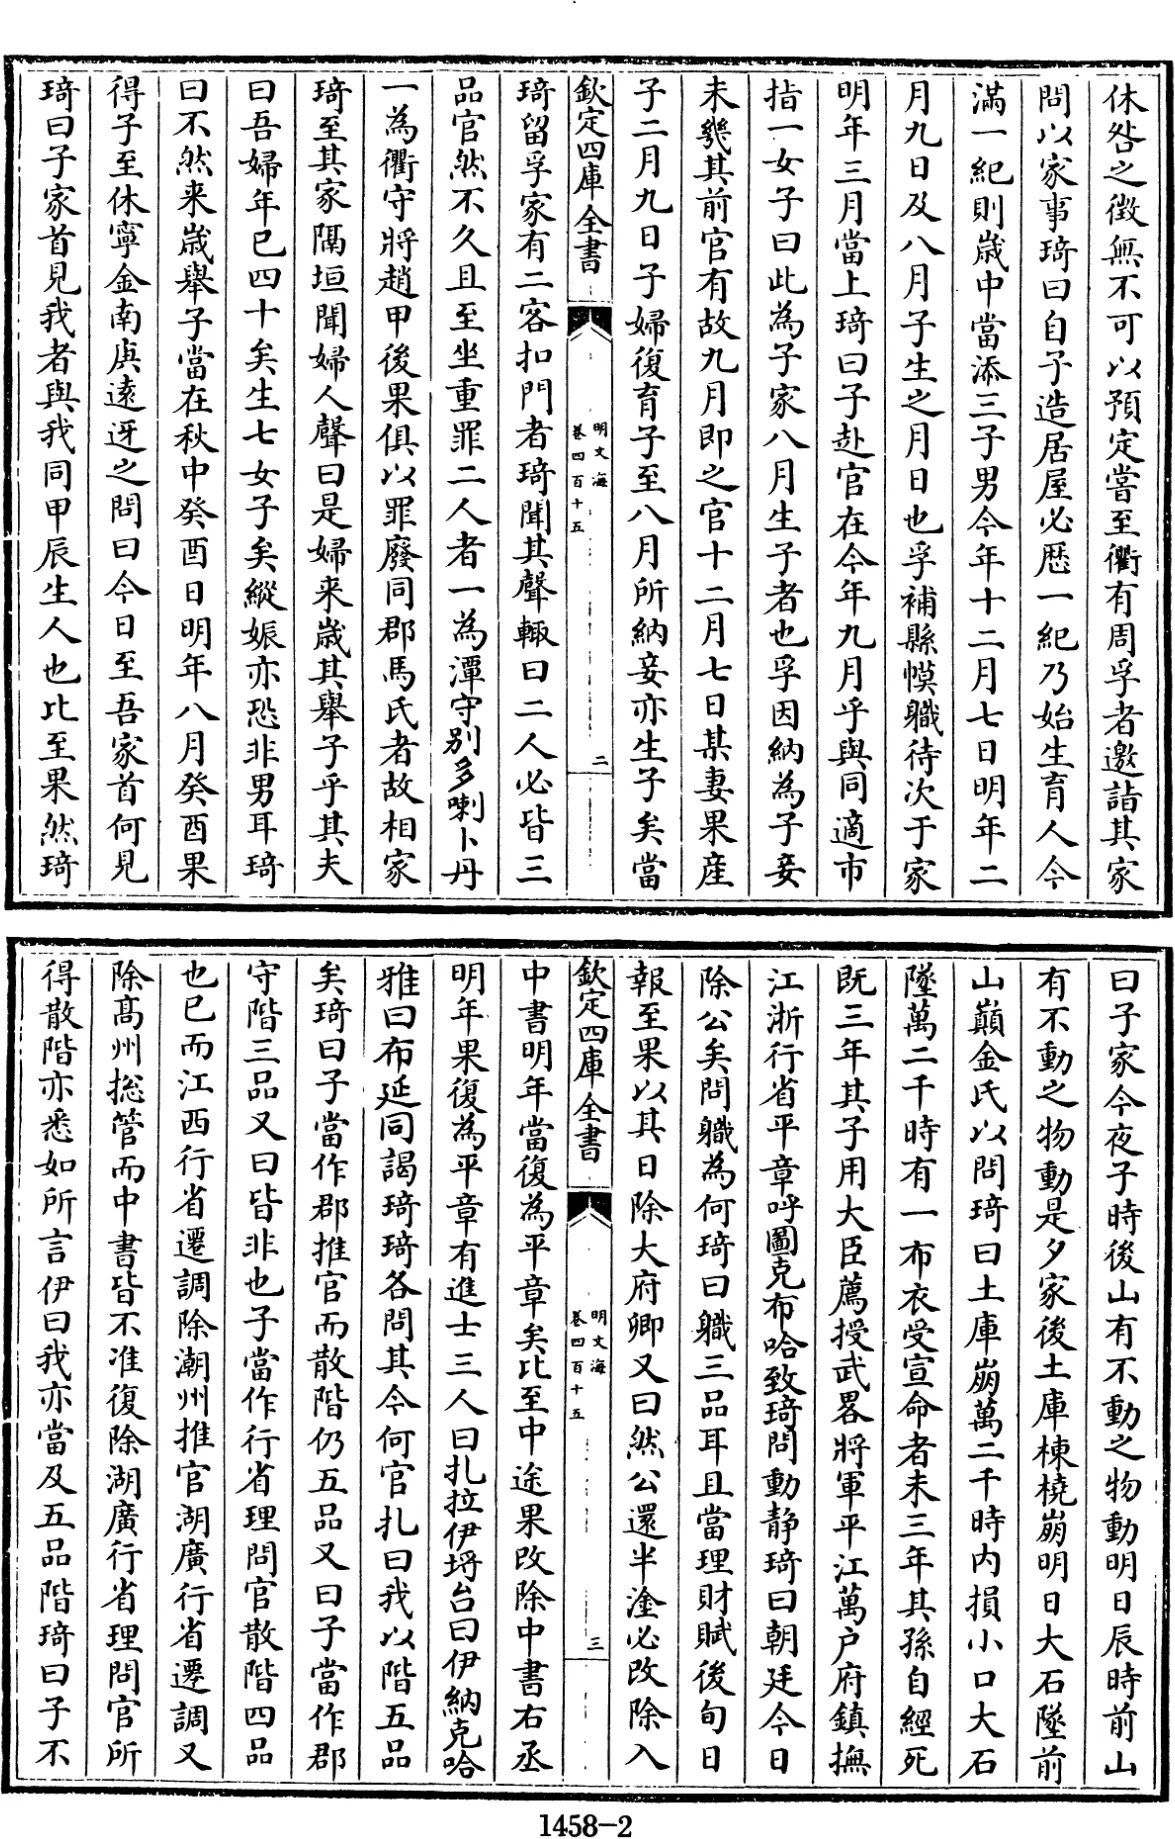 休咎之徵無不可以預定嘗至衢有周孚者邀詣其家
問以家事琦曰自子造居屋必歷一紀乃始生育人今
滿一紀則歲中當添三子男今年十二月七日明年二
月九日及八月子生之月日也孚補縣幙職待次于家
明年三月當上琦曰子赴官在今年九月乎與同適市
指一女子曰此為子家八月生子者也孚因納為子妾
未幾其前官有故九月即之官十二月七日某妻果産
子二月九日子婦復育子至八月所納妾亦生子矣當
欽定四庫全書
明文海
卷四百十五
二
琦留孚家有二客扣門者琦聞其聲輙曰二人必皆三
品官然不久且至坐重罪二人者一為潭守别多喇卜丹
一為衢守將趙甲後果俱以罪廢同郡馬氏者故相家
琦至其家隔垣聞婦人聲曰是婦来歲其舉子乎其夫
曰吾婦年已四十矣生七女子矣縱娠亦恐非男耳琦
曰不然来歲舉子當在秋中癸酉日明年八月癸酉果
得子至休寧金南庚遠迓之問曰今日至吾家首何見
琦曰子家首見我者與我同甲辰生人也比至果然琦
曰子家今夜子時後山有不動之物動明日辰時前山
有不動之物動是夕家後土庫棟橈崩明日大石墜前
山巔金氏以問琦曰土庫崩萬二千時内損小口大石
墜萬二千時有一布衣受宣命者未三年其孫自經死
既三年其子用大臣薦授武畧將軍平江萬户府鎮撫
江浙行省平章呼圖克布哈致琦問動静琦曰朝廷今日
除公矣問職為何琦曰職三品耳且當理財賦後旬日
報至果以其日除大府卿又曰然公還半塗必改除入
欽定四庫全書
明文海
卷四百十五
三
中書明年當復為平章矣比至中途果改除中書右丞
明年果復為平章有進士三人曰扎拉伊埒台曰伊納克哈
雅曰布延同謁琦琦各問其今何官扎曰我以階五品
矣琦曰子當作郡推官而散階仍五品又曰子當作郡
守階三品又曰皆非也子當作行省理問官散階四品
也已而江西行省遷調除潮州推官湖廣行省遷調又
除髙州総管而中書皆不准復除湖廣行省理問官所
得散階亦悉如所言伊曰我亦當及五品階琦曰子不
1458-2